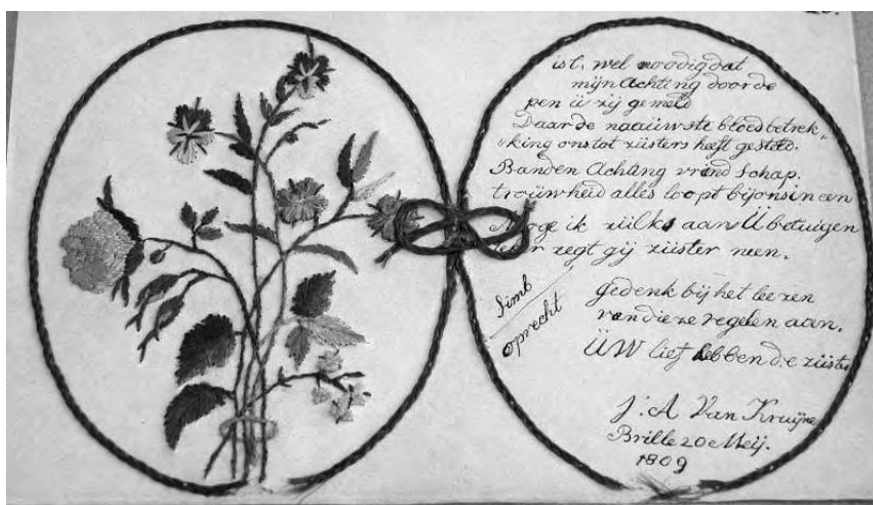 ist. wel noodig dat
mijn Achting door de
pen ü zij gemeld
Daar de naaüwste bloed betrek„
„king ons tot züsters heeft gesteld.
Banden Achting vrind schap.
troüwheid alles loopt bij ons in een
Moge ik zülks aan Ü betuigen
zegt gij züster neen.
Simb
oprecht
gedenk bij het leezen
van dieze regelen aan.
ÜW lief hebbende züster
J: A Van Kruijne
Brille 20e Meij.
1809